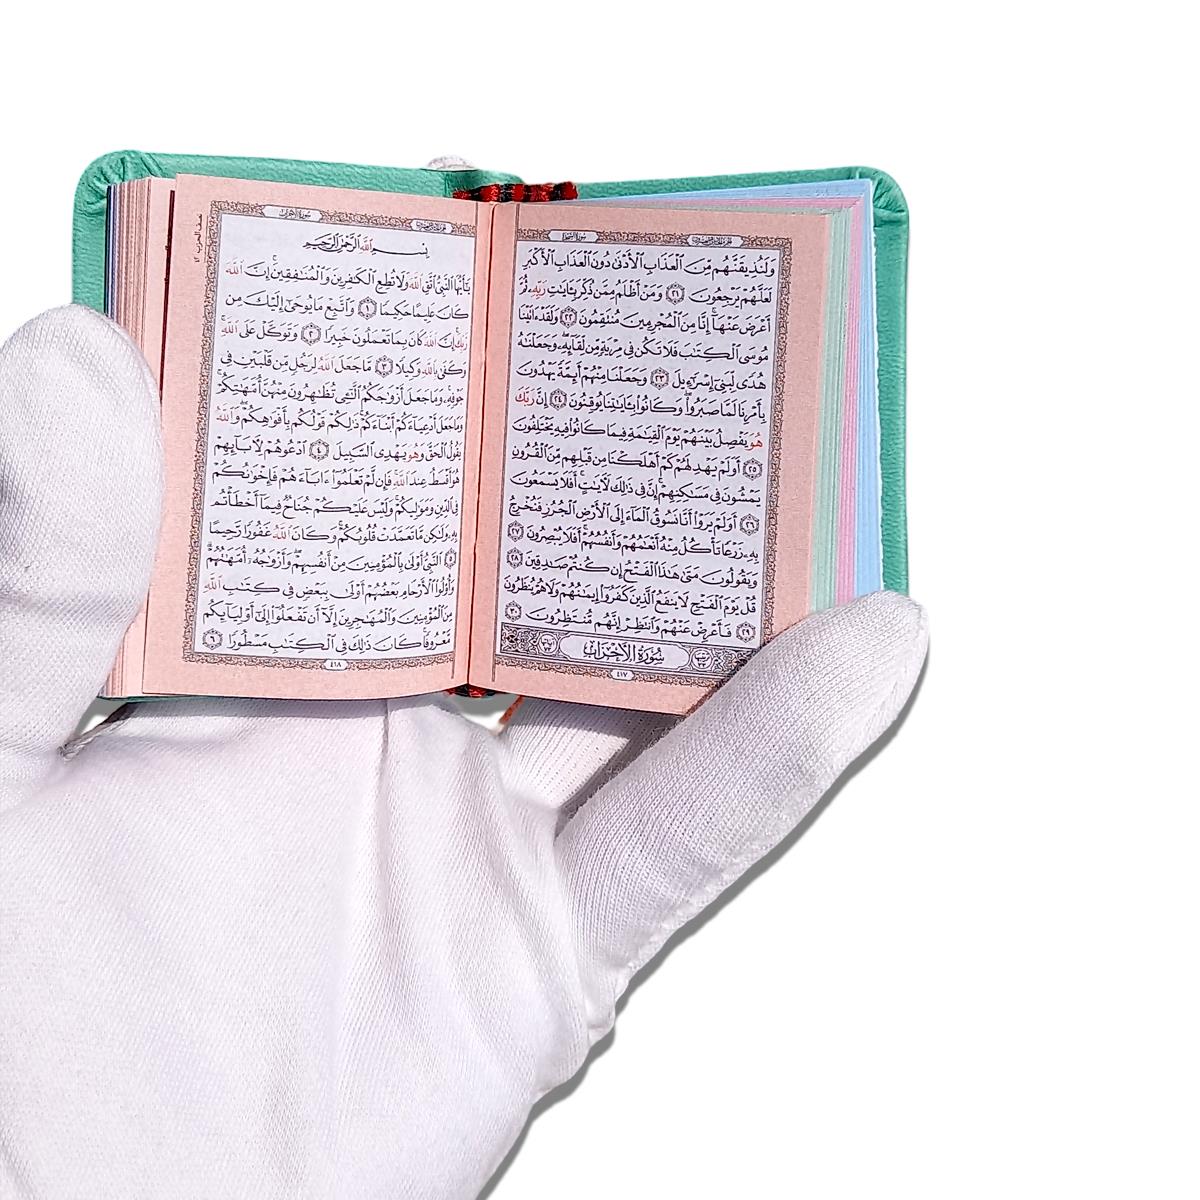 سورة السجدة
الجزء الحادي والعشرون
وَلَنُذِيقَنَّهُم مِّنَ ٱلْعَذَابِ ٱلْأَدْنَىٰ دُونَ ٱلْعَذَابِ ٱلْأَكْبَرِ
لَعَلَّهُمْ يَرْجِعُونَ ٢١ وَمَنْ أَظْلَمُ مِمَّن ذُكِّرَ بِـَٔايَٰتِ رَبِّهِۦ ثُمَّ
أَعْرَضَ عَنْهَآ ۚ إِنَّا مِنَ ٱلْمُجْرِمِينَ مُنتَقِمُونَ ٢٢ وَلَقَدْ ءَاتَيْنَا
مُوسَى ٱلْكِتَٰبَ فَلَا تَكُن فِى مِرْيَةٍ مِّن لِّقَآئِهِۦ ۖ وَجَعَلْنَٰهُ
هُدًى لِّبَنِىٓ إِسْرَٰٓءِيلَ ٢٣ وَجَعَلْنَا مِنْهُمْ أَئِمَّةً يَهْدُونَ
بِأَمْرِنَا لَمَّا صَبَرُوا۟ ۖ وَكَانُوا۟ بِـَٔايَٰتِنَا يُوقِنُونَ ٢٤ إِنَّ رَبَّكَ
هُوَ يَفْصِلُ بَيْنَهُمْ يَوْمَ ٱلْقِيَٰمَةِ فِيمَا كَانُوا۟ فِيهِ يَخْتَلِفُونَ
٢٥ أَوَلَمْ يَهْدِ لَهُمْ كَمْ أَهْلَكْنَا مِن قَبْلِهِم مِّنَ ٱلْقُرُونِ
يَمْشُونَ فِى مَسَٰكِنِهِمْ ۚ إِنَّ فِى ذَٰلِكَ لَـَٔايَٰتٍ ۖ أَفَلَا يَسْمَعُونَ
٢٦ أَوَلَمْ يَرَوْا۟ أَنَّا نَسُوقُ ٱلْمَآءَ إِلَى ٱلْأَرْضِ ٱلْجُرُزِ فَنُخْرِجُ
بِهِۦ زَرْعًا تَأْكُلُ مِنْهُ أَنْعَٰمُهُمْ وَأَنفُسُهُمْ ۖ أَفَلَا يُبْصِرُونَ ٢٧
وَيَقُولُونَ مَتَىٰ هَٰذَا ٱلْفَتْحُ إِن كُنتُمْ صَٰدِقِينَ ٢٨
قُلْ يَوْمَ ٱلْفَتْحِ لَا يَنفَعُ ٱلَّذِينَ كَفَرُوٓا۟ إِيمَٰنُهُمْ وَلَا هُمْ يُنظَرُونَ
٢٩ فَأَعْرِضْ عَنْهُمْ وَٱنتَظِرْ إِنَّهُم مُّنتَظِرُونَ ٣٠
سُورَةُ الأَحْزَاب
٤١٧
الجزء الحادي والعشرون
سورة الأحزاب
بِسْمِ ٱللَّهِ ٱلرَّحْمَٰنِ ٱلرَّحِيمِ
يَٰٓأَيُّهَا ٱلنَّبِىُّ ٱتَّقِ ٱللَّهَ وَلَا تُطِعِ ٱلْكَٰفِرِينَ وَٱلْمُنَٰفِقِينَ ۗ إِنَّ ٱللَّهَ
كَانَ عَلِيمًا حَكِيمًا ١ وَٱتَّبِعْ مَا يُوحَىٰٓ إِلَيْكَ مِن
رَّبِّكَ ۚ إِنَّ ٱللَّهَ كَانَ بِمَا تَعْمَلُونَ خَبِيرًا ٢ وَتَوَكَّلْ عَلَى ٱللَّهِ ۚ
وَكَفَىٰ بِٱللَّهِ وَكِيلًا ٣ مَّا جَعَلَ ٱللَّهُ لِرَجُلٍ مِّن قَلْبَيْنِ فِى
جَوْفِهِۦ ۚ وَمَا جَعَلَ أَزْوَٰجَكُمُ ٱلَّٰٓـِٔى تُظَٰهِرُونَ مِنْهُنَّ أُمَّهَٰتِكُمْ ۚ
وَمَا جَعَلَ أَدْعِيَآءَكُمْ أَبْنَآءَكُمْ ۚ ذَٰلِكُمْ قَوْلُكُم بِأَفْوَٰهِكُمْ ۖ وَٱللَّهُ
يَقُولُ ٱلْحَقَّ وَهُوَ يَهْدِى ٱلسَّبِيلَ ٤ ٱدْعُوهُمْ لِـَٔابَآئِهِمْ
هُوَ أَقْسَطُ عِندَ ٱللَّهِ ۚ فَإِن لَّمْ تَعْلَمُوٓا۟ ءَابَآءَهُمْ فَإِخْوَٰنُكُمْ
فِى ٱلدِّينِ وَمَوَٰلِيكُمْ ۚ وَلَيْسَ عَلَيْكُمْ جُنَاحٌ فِيمَآ أَخْطَأْتُم
بِهِۦ وَلَٰكِن مَّا تَعَمَّدَتْ قُلُوبُكُمْ ۚ وَكَانَ ٱللَّهُ غَفُورًا رَّحِيمًا
٥ ٱلنَّبِىُّ أَوْلَىٰ بِٱلْمُؤْمِنِينَ مِنْ أَنفُسِهِمْ ۖ وَأَزْوَٰجُهُۥٓ أُمَّهَٰتُهُمْ ۗ
وَأُو۟لُوا۟ ٱلْأَرْحَامِ بَعْضُهُمْ أَوْلَىٰ بِبَعْضٍ فِى كِتَٰبِ ٱللَّهِ
مِنَ ٱلْمُؤْمِنِينَ وَٱلْمُهَٰجِرِينَ إِلَّآ أَن تَفْعَلُوٓا۟ إِلَىٰٓ أَوْلِيَآئِكُم
مَّعْرُوفًا ۚ كَانَ ذَٰلِكَ فِى ٱلْكِتَٰبِ مَسْطُورًا ٦
٤١٨